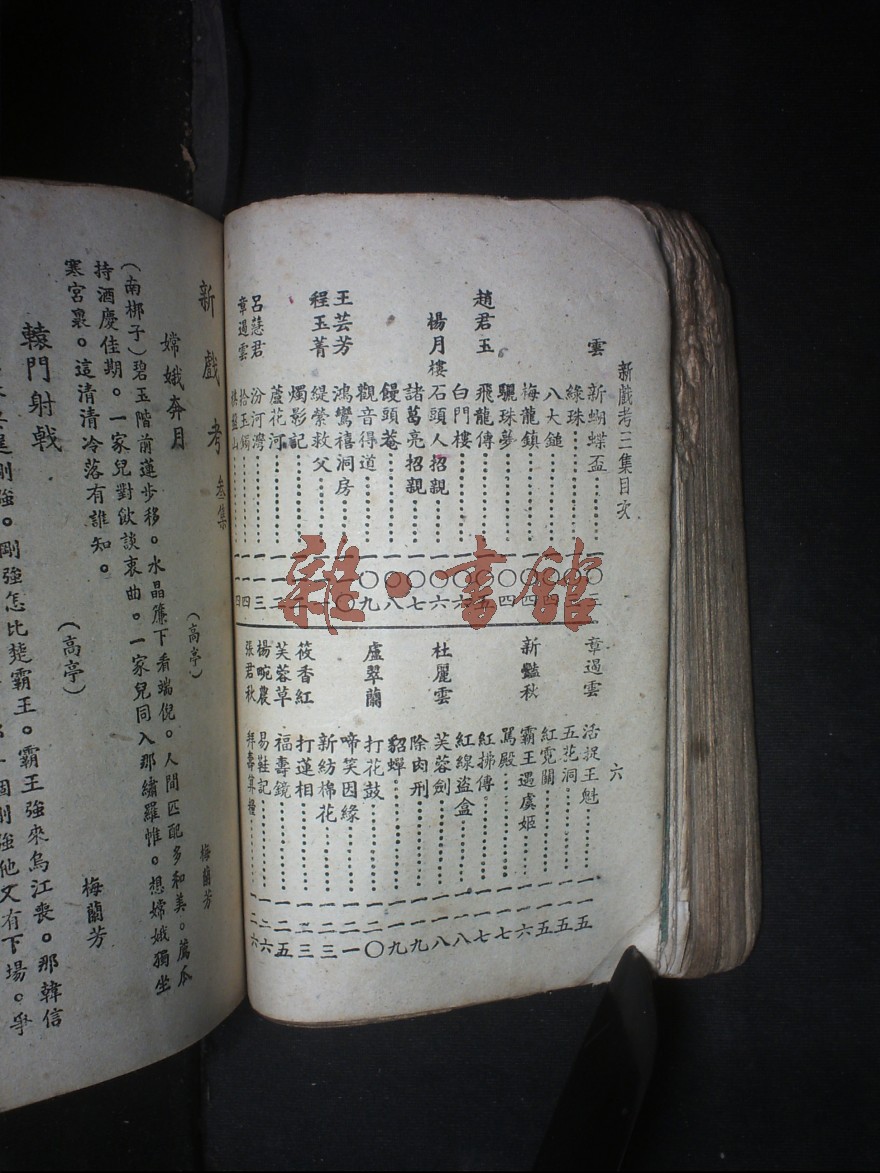 新戲考三集目次
六
雲
新蝴蝶盃
綠珠
八大鎚
梅龍鎮
驪珠夢
趙君玉
飛龍傳
白門樓
楊月樓
石頭人招親
諸葛亮招親
饅頭菴
觀音得道
王芸芳
鴻鸞禧洞房
程玉菁
緹縈救父
燭影記
蘆花河
呂慧君
汾河灣
章遏雲
拾玉鐲
章遏雲
活捉王魁……一一五
五花洞……一一五
紅霓關……一一五
新豔秋
霸王遇虞姬……一一六
罵殿……一一七
紅拂傳……一一七
紅線盜盒……一一八
杜麗雲
芙蓉劍……一一八
除肉刑……一一九
貂蟬……一一九
盧翠蘭
打花鼓……一二〇
啼笑因緣……一二一
新紡棉花……一二三
筱香紅
打蓮相……一二三
芙蓉草
福壽鏡……一二五
楊畹農
易鞋記……一二六
張君秋
拜壽算糧……一二六
新戲考 叁集
嫦娥奔月
(高亭)
梅蘭芳
(南梆子)碧玉階前蓮步移。水晶簾下看端倪。人間匹配多和美。薦瓜
持酒慶佳期。一家兒對飲談衷曲。一家兒同入那繡羅帷。想嫦娥獨坐
寒宮裏。這清清冷落有誰知。
轅門射戟
(高亭)
梅蘭芳
剛強。剛強怎比楚霸王。霸王強來烏江喪。那韓信
強他又有下場。爭
雜·書館